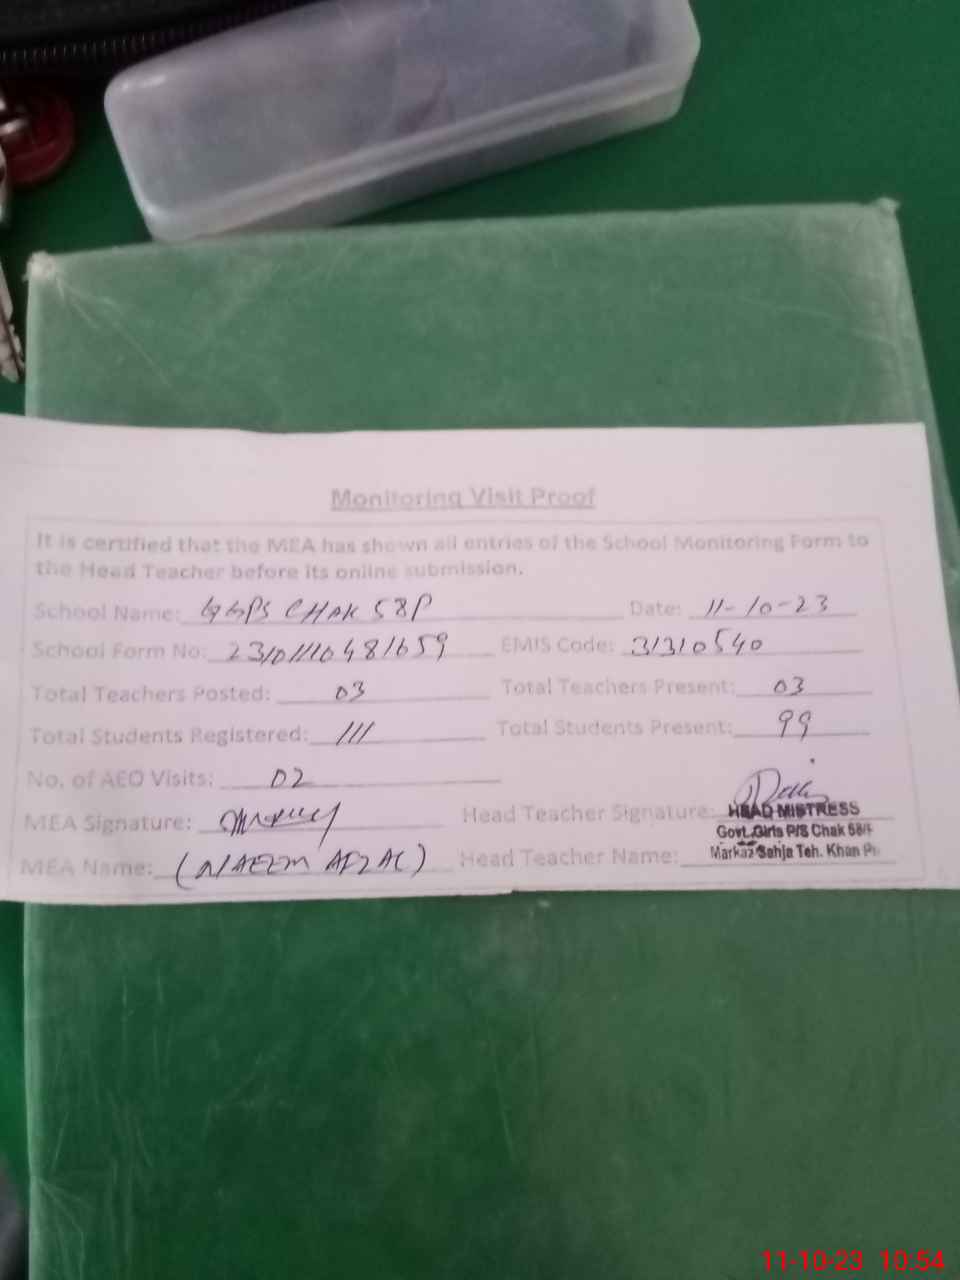 Monitoring Visit Proof
It is certified that the MEA has shown all entries of the School Monitoring Form to
the Head Teacher before its online submission.
School Name: GGPS CHAK 58P Date: 11-10-23
School Form No: 2310111048 1659 EMIS Code: 31310540
Total Teachers Posted: 03 Total Teachers Present: 03
Total Students Registered: 111 Total Students Present: 99
No. of AEO Visits: 02
MEA Signature: Head Teacher Signature:
HEAD MISTRESS
Govt. Girls P/S Chak 58/P
MEA Name: (NAEEM AFZAL) Head Teacher Name:
Markaz Sehja Teh. Khan
11-10-23 10:54